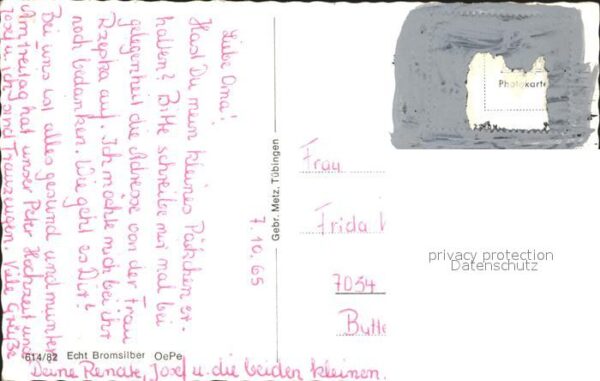 Liebe Oma!
Hast Du mein kleines Päckchen er-
halten? Bitte schreibe mir mal bei
gelegenheit die Adresse von der Frau
Rzepka auf. Ich möchte mich bei ihr
noch bedanken. Wie geht es Dir?
Bei uns ist alles gesund und munter
Am freitag hat unser Peter Hochzeit und
Josef u. ich sind Trauzeugen. Viele Grüße
Deine Renate, Josef u. die beiden kleinen.
7.10.65
614/82 Echt Bromsilber OePe
Gebr. Metz, Tübingen
Photokarte
Frau
Frida
7054
Butte
privacy protection
Datenschutz